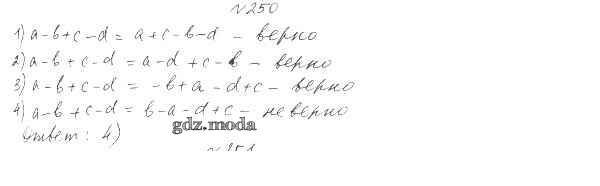 №250
1) a-b+c-d = a+c-b-d - верно
2) a-b+c-d = a-d+c-b - верно
3) a-b+c-d = -b+a-d+c - верно
4) a-b+c-d = b-a-d+c - не верно
Ответ: 4)
gdz.moda